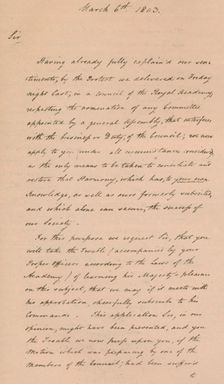 March 6th 1803.
Sir,
Having already fully explain'd our sen-
timents, by the Protest we delivered on Friday
night last, in a Council of the Royal Academy,
respecting the nomination of any Committee
appointed by a general Assembly, that interferes
with the business or Duty, of the Council; we now
apply to you under all circumstances consider'd
as the only means to be taken to maintain and
restore that Harmony, which has, to your own
knowledge, as well as ours formerly subsisted,
and which alone can secure, the success of
our Society.
For this purpose we request Sir, that you
will take the trouble (accompanied by your
Proper officers according to the Laws of the
Academy) of learning his Majesty's pleasure
on this subject, that we may if it meets with
his approbation, chearfully subscribe to his
Commands. This application Sir, in our
opinion, might have been prevented, and you
the Trouble we now press upon you, if the
Motion which was preparing by one of the
members of the Council, had been suffer'd
to